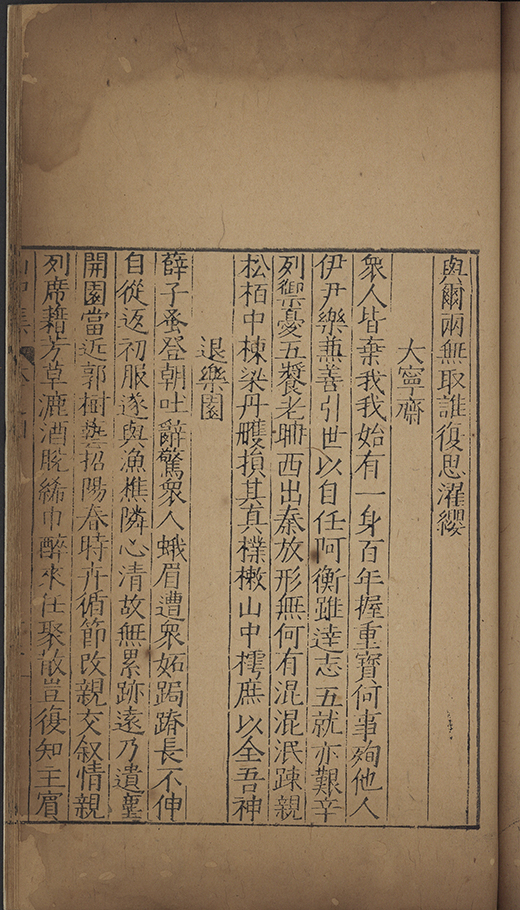 與爾兩無取誰復思濯纓
大寧齋
衆人皆棄我我始有一身百年握重寶何事殉他人
伊尹樂兼善引世以自任阿衡雖逹志五就亦艱辛
列禦憂五饗老聃西出秦放形無何有混混泯踈親
松栢中棟梁丹雘損其真樸樕山中樗庶以全吾神
退樂園
薛子蚤登朝吐辭驚衆人蛾眉遭衆妬跼蹐長不伸
自從返初服遂與漁樵隣心清故無累跡遠乃遺塵
開園當近郭樹藝招陽春時卉循節改親交叙情親
列席藉芳草漉酒脫絺巾醉來任聚散豈復知主賓